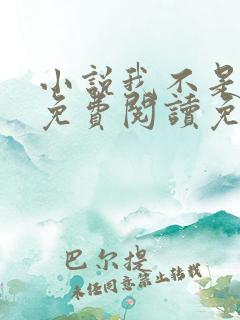 小說我不是
免費閱讀免
巴尔提
未经同意禁止转载